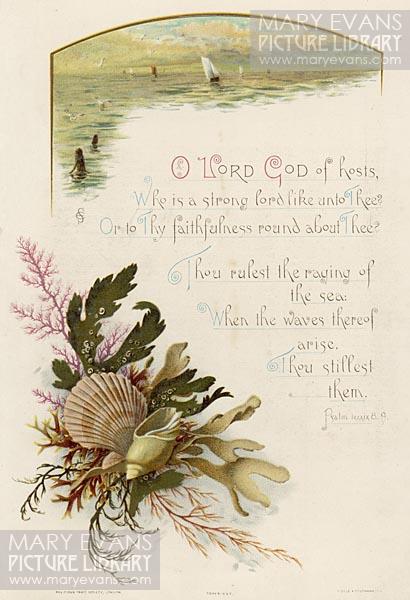 MARY EVANS
PICTURE LIBRARY
www.maryevans.com
O LORD GOD of hosts,
Who is a strong lord like unto Thee?
Or to Thy faithfulness round about Thee?
Thou rulest the raging of
the sea:
When the waves thereof
arise,
Thou stillest
them.
Psalm lxxxix 8. 9.
MARY EVANS
PICTURE LIBRARY
www.maryevans.com
MARY EVANS
PICTURE LIBRARY
www.maryevans.com
RELIGIOUS TRACT SOCIETY, LONDON.
COPYRIGHT.